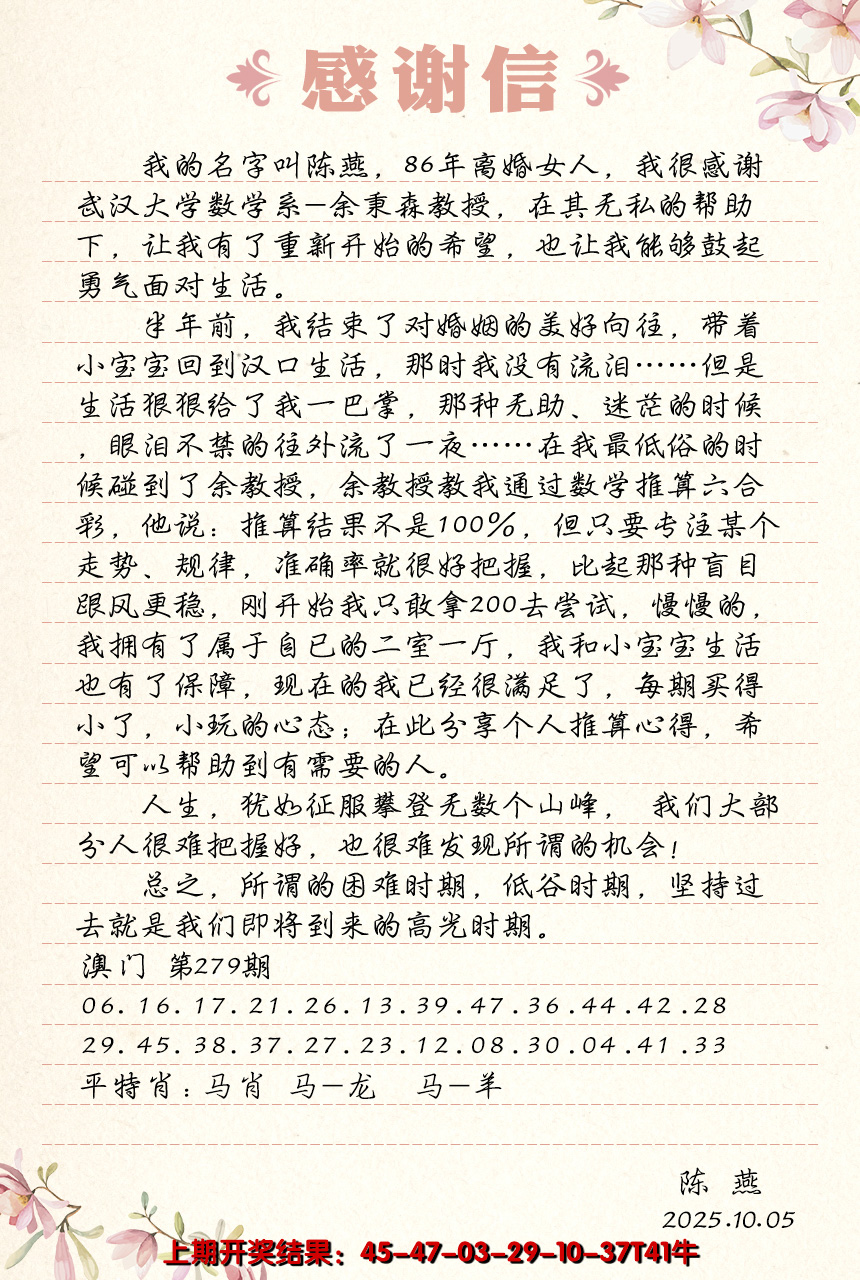 感谢信
我的名字叫陈燕，86年离婚女人，我很感谢
武汉大学数学系—余秉森教授，在其无私的帮助
下，让我有了重新开始的希望，也让我能够鼓起
勇气面对生活。
半年前，我结束了对婚姻的美好向往，带着
小宝宝回到汉口生活，那时我没有流泪……但是
生活狠狠给了我一巴掌，那种无助、迷茫的时候
，眼泪不禁的往外流了一夜……在我最低俗的时
候碰到了余教授，余教授教我通过数学推算六合
彩，他说：推算结果不是100%，但只要专注某个
走势、规律，准确率就很好把握，比起那种盲目
跟风更稳，刚开始我只敢拿200去尝试，慢慢的，
我拥有了属于自已的二室一厅，我和小宝宝生活
也有了保障，现在的我已经很满足了，每期买得
小了，小玩的心态；在此分享个人推算心得，希
望可以帮助到有需要的人。
人生，犹如征服攀登无数个山峰， 我们大部
分人很难把握好，也很难发现所谓的机会！
总之，所谓的困难时期，低谷时期，坚持过
去就是我们即将到来的高光时期。
澳门 第279期
06.16.17.21.26.13.39.47.36.44.42.28
29.45.38.37.27.23.12.08.30.04.41.33
平特肖：马肖 马—龙 马—羊
陈 燕
2025.10.05
上期开奖结果：45-47-03-29-10-37T41牛